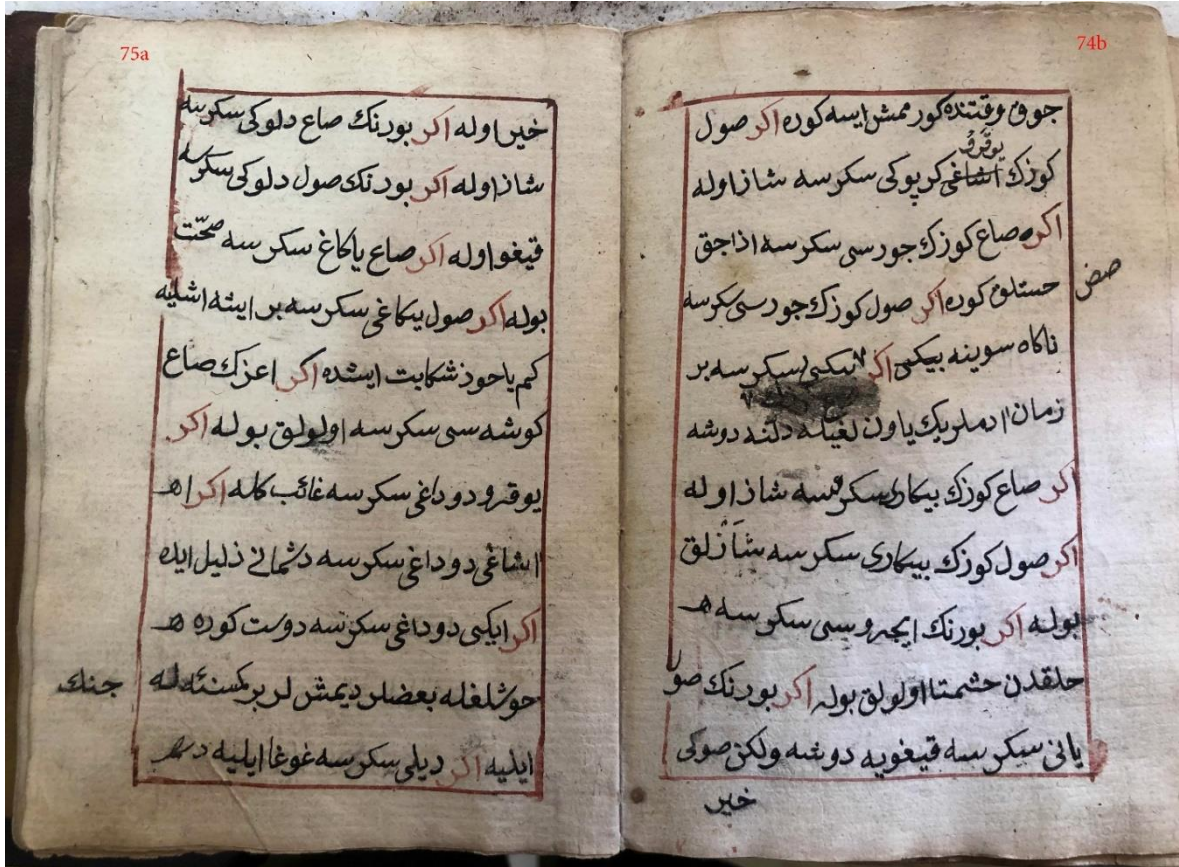 74b
جوق وقتنده كورممش ايسه كوره اكر صول
يوقرو
كوزك اشاغى كرپوكى سكرسه شاذ اوله
اكر صاع كوزك جورسى سكرسه اذاجق
حستلق كوره اكر صول كوزك جورسى سكرسه
ناكاه سوينه بيكى اكر سكرسه بر
زمان ادملريك ياون لغيله دلنه دوشه
اكر صاع كوزك بيكارى سكرسه شاذ اوله
اكر صول كوزك بيكارى سكرسه شاذلق
بوله اكر بورنك ايجروسى سكرسه
حلقدن حشمتا اولولق بوله اكر بورنك صو
يانى سكرسه قيغويه دوشه ولكن صوكى
خير
75a
خير اوله اكر بورنك صاع دلوكى سكرسه
شاذ اوله اكر بورنك صول دلوكى سكرسه
قيغو اوله اكر صاع ياكاغ سكرسه صحّت
بوله اكر صول يكاغى سكرسه بر ايشه اشليه
كم ياحوذ شكايت ايشده اكر اعزك صاع
كوشه سى سكرسه اولولق بوله اكر
يوقرو دوداغى سكرسه غائب كله اكر
اشاغى دوداغى سكرسه دشمانى ذليل ايده
اكر ايكى دوداغى سكرسه دوست كوره
حوشلغله بعضلر ديمش لر بر كمسنئه له جنك
ايليه اكر ديلى سكرسه غوغا ايليه